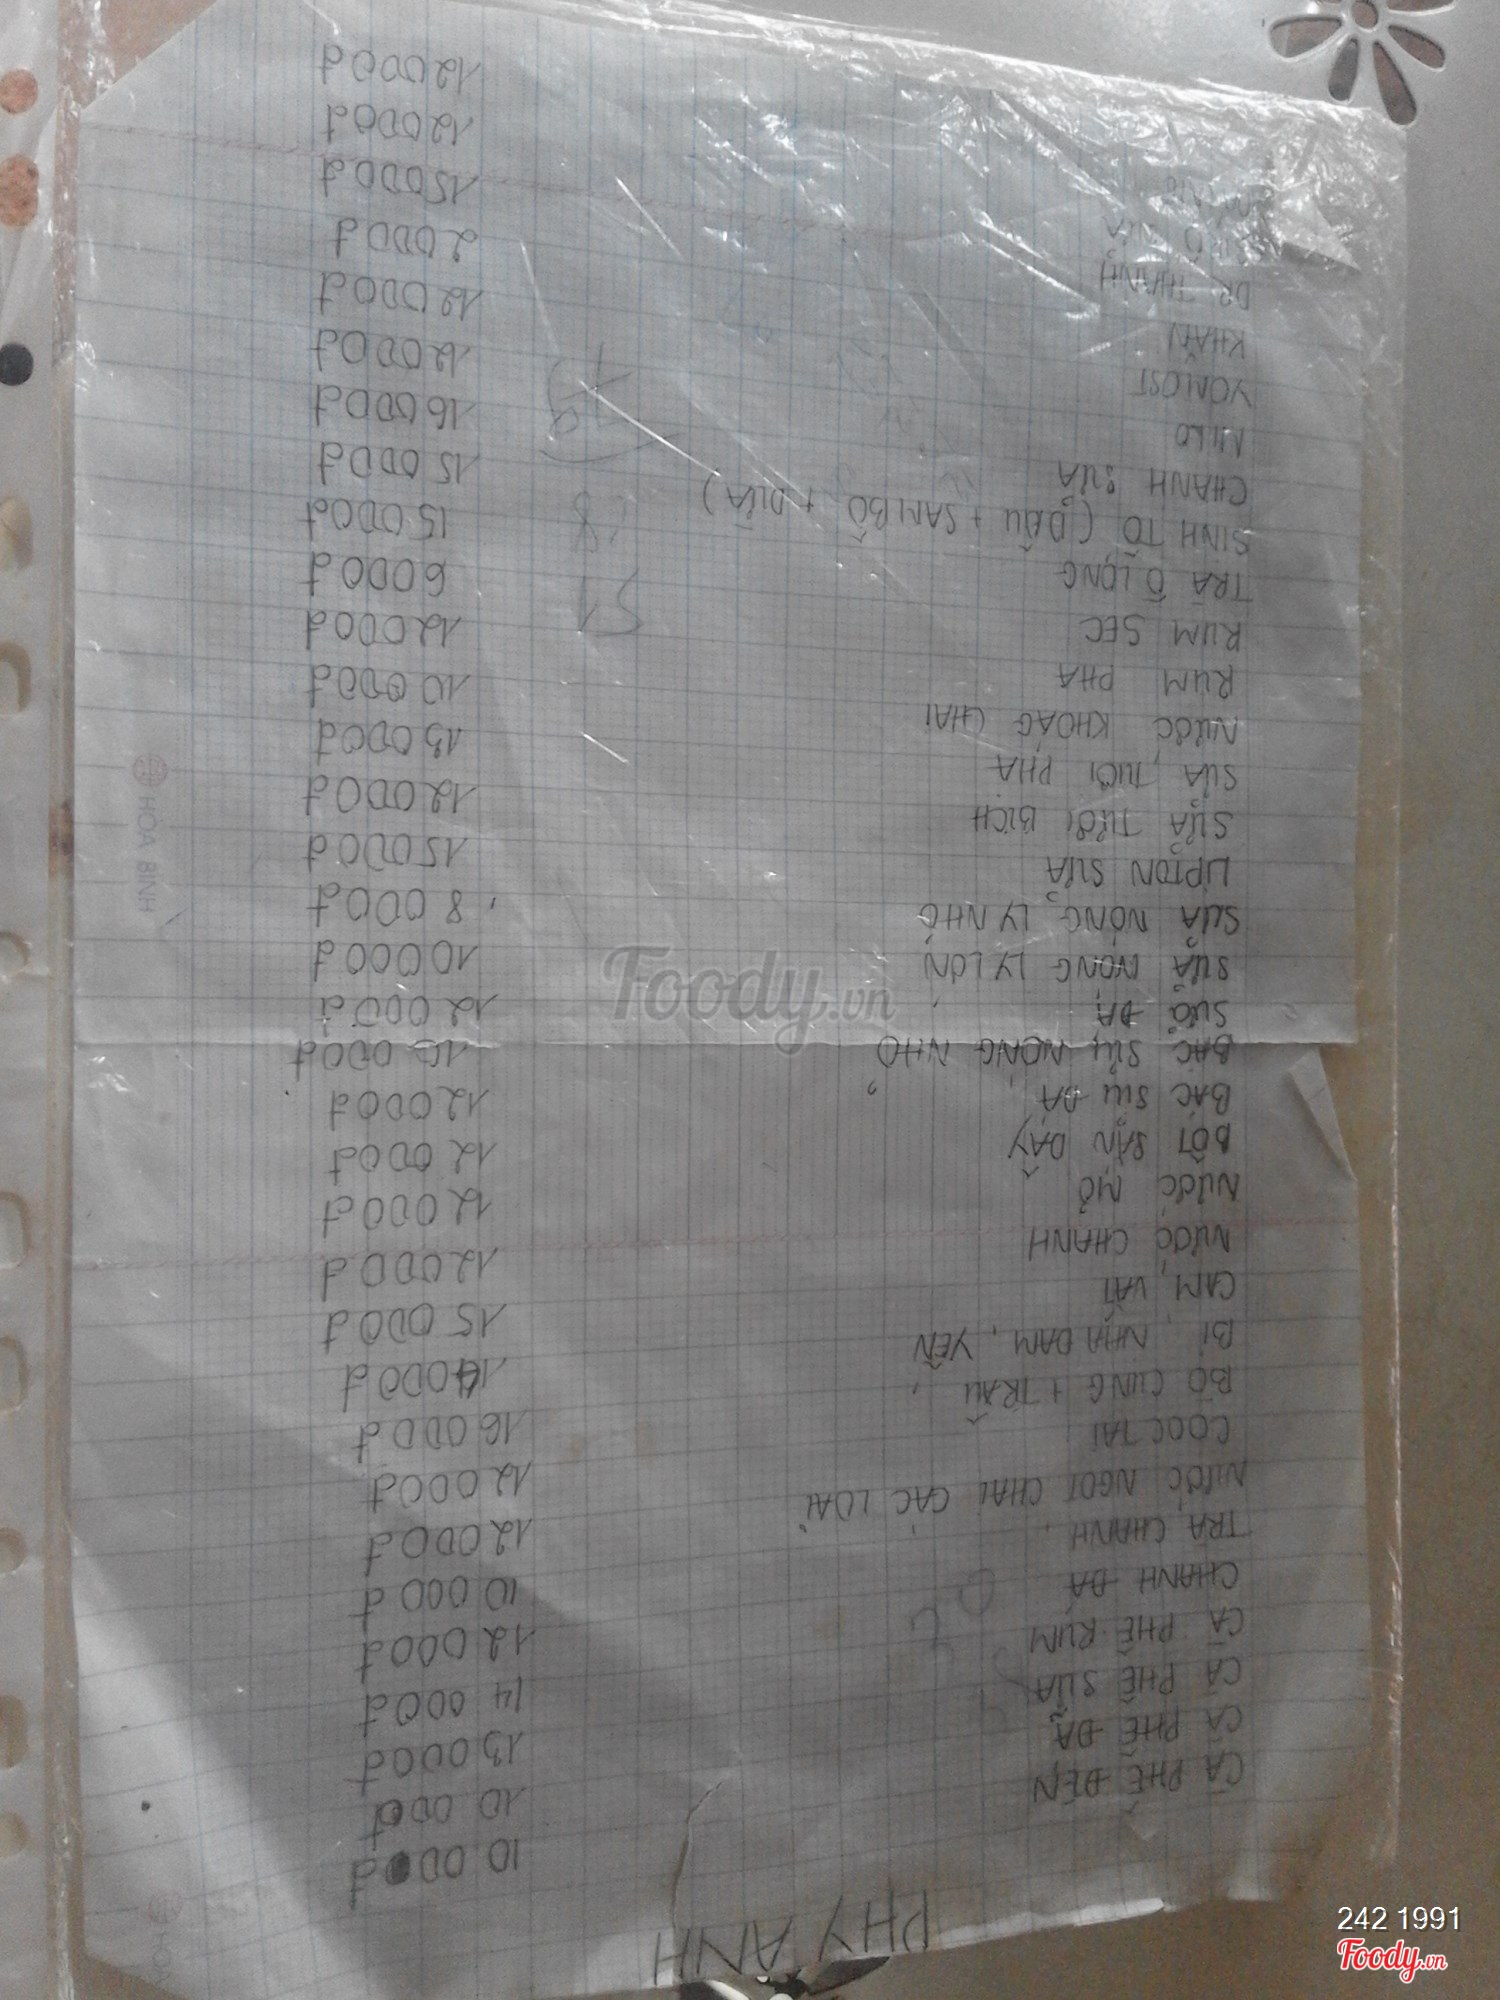 PHY ANH
CÀ PHÊ ĐEN 10 000đ
CÀ PHÊ ĐÁ 10 000đ
CÀ PHÊ SỮA 13 000đ
CÀ PHÊ RUM 14 000đ
CHANH ĐÁ 12 000đ
TRÀ CHANH 10 000đ
NƯỚC NGỌT CHAI CÁC LOẠI 12 000đ
COOCTAI 12 000đ
BÒ CỤNG + TRÂU 16 000đ
BÍ, NHA ĐAM, YẾN 14 000đ
CAM VẮT 15 000đ
NƯỚC CHANH 12 000đ
NƯỚC MƠ 12 000đ
BỘT SẮN DÂY 12 000đ
BẠC SỈU ĐÁ 12 000đ
BẠC SỈU NÓNG NHỎ 10 000đ
SỮA ĐÁ 12 000đ
SỮA NÓNG LY LỚN 10 000đ
SỮA NÓNG LY NHỎ 8 000đ
LIPTON SỮA 15 000đ
SỮA TƯƠI BỊCH 12 000đ
SỮA TƯƠI PHA 13 000đ
NƯỚC KHOÁG CHAI 10 000đ
RUM PHA 12 000đ
RUM SEC 6 000đ
TRÀ Ô LONG 15 000đ
SINH TỐ (DÂU + SAMBÔ + DỪA) 15 000đ
CHANH SỮA 16 000đ
MILO 12 000đ
YOMOST 12 000đ
KHĂN 2 000đ
DR. THANH 15 000đ
12 000đ
12 000đ
51
HÒA BÌNH
Foody.vn
242 1991
Foody.vn